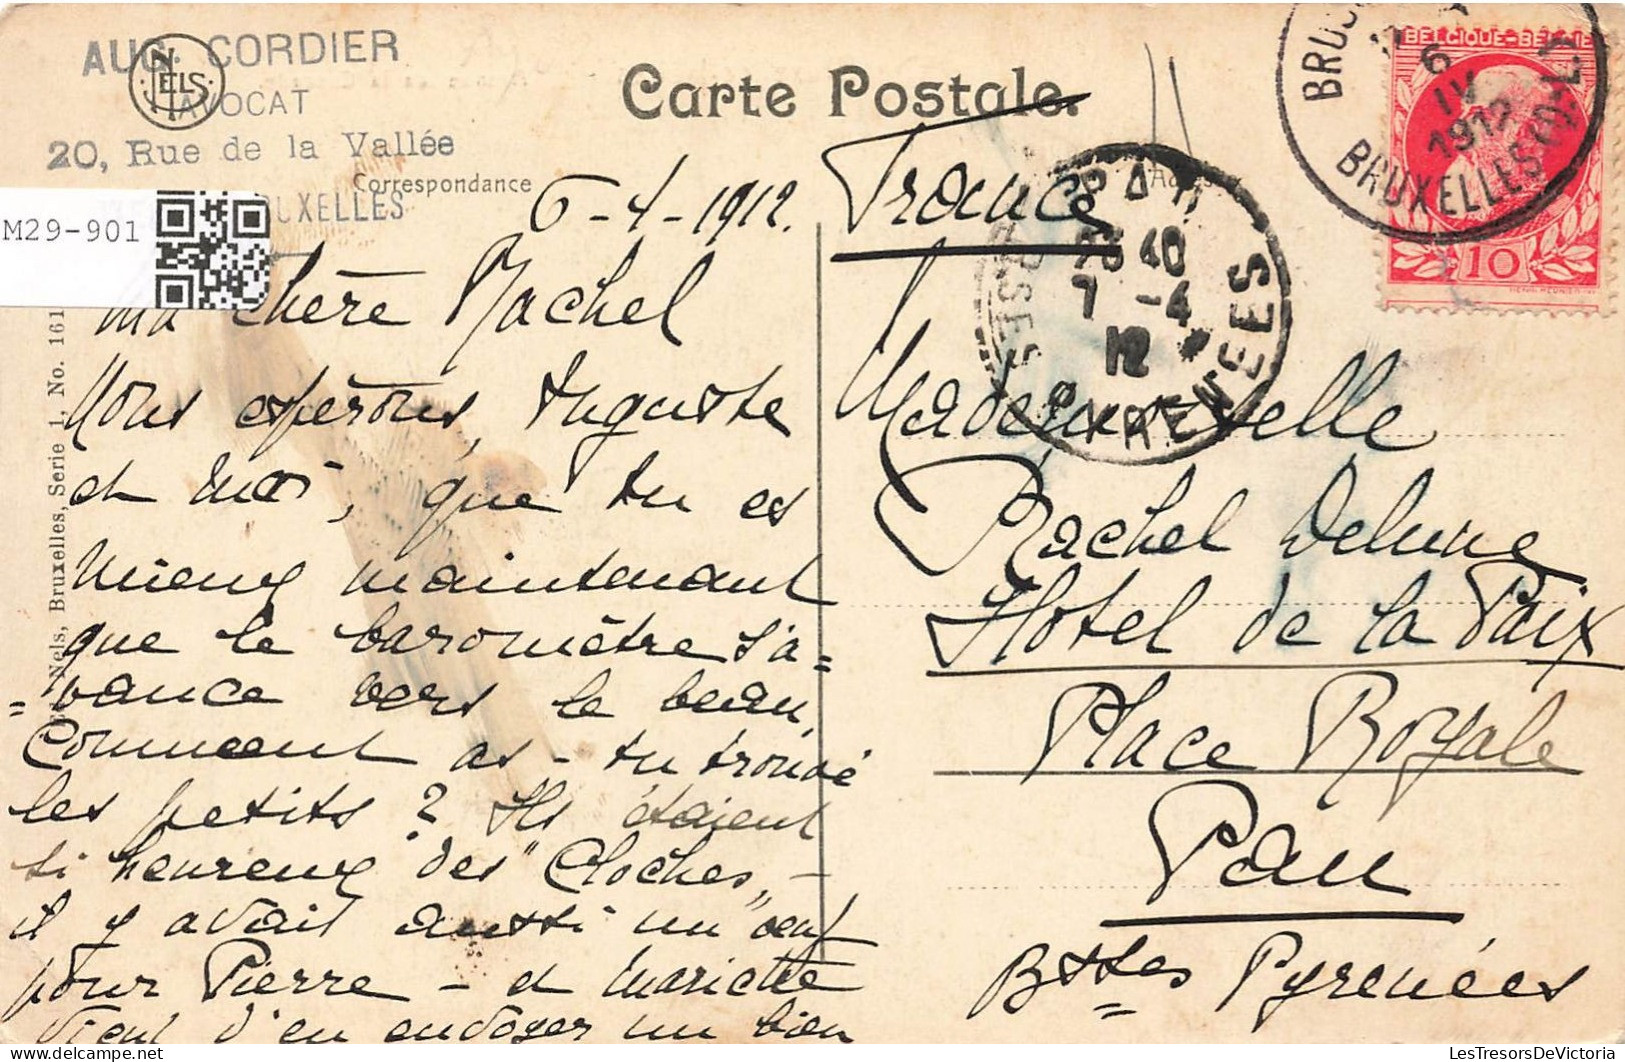 AUG. CORDIER
NELS
AVOCAT
20, Rue de la Vallée
BRUXELLES
M29-901
Carte Postale.
Correspondance
6-4-1912.
Ma chère Rachel
Nous espérons, Auguste
et moi, que tu es
mieux maintenant
que le baromètre s'a=
=vance vers le beau,
Comment as-tu trouvé
les petits ? Ils étaient
si heureux des "Cloches" -
il y avait aussi un œuf
pour Pierre - et Mariette
vient d'en envoyer un bien
Nels, Bruxelles, Serie 1, No. 161
France
PAU
40
7 -4
12
PYRENEES
BELGIQUE-BELGIE
10
6
IV
1912
BRUXELLES
Mademoiselle
Rachel
Hôtel de la Paix
Place Royale
Pau
Bsses Pyrénées
LesTresorsDeVictoria